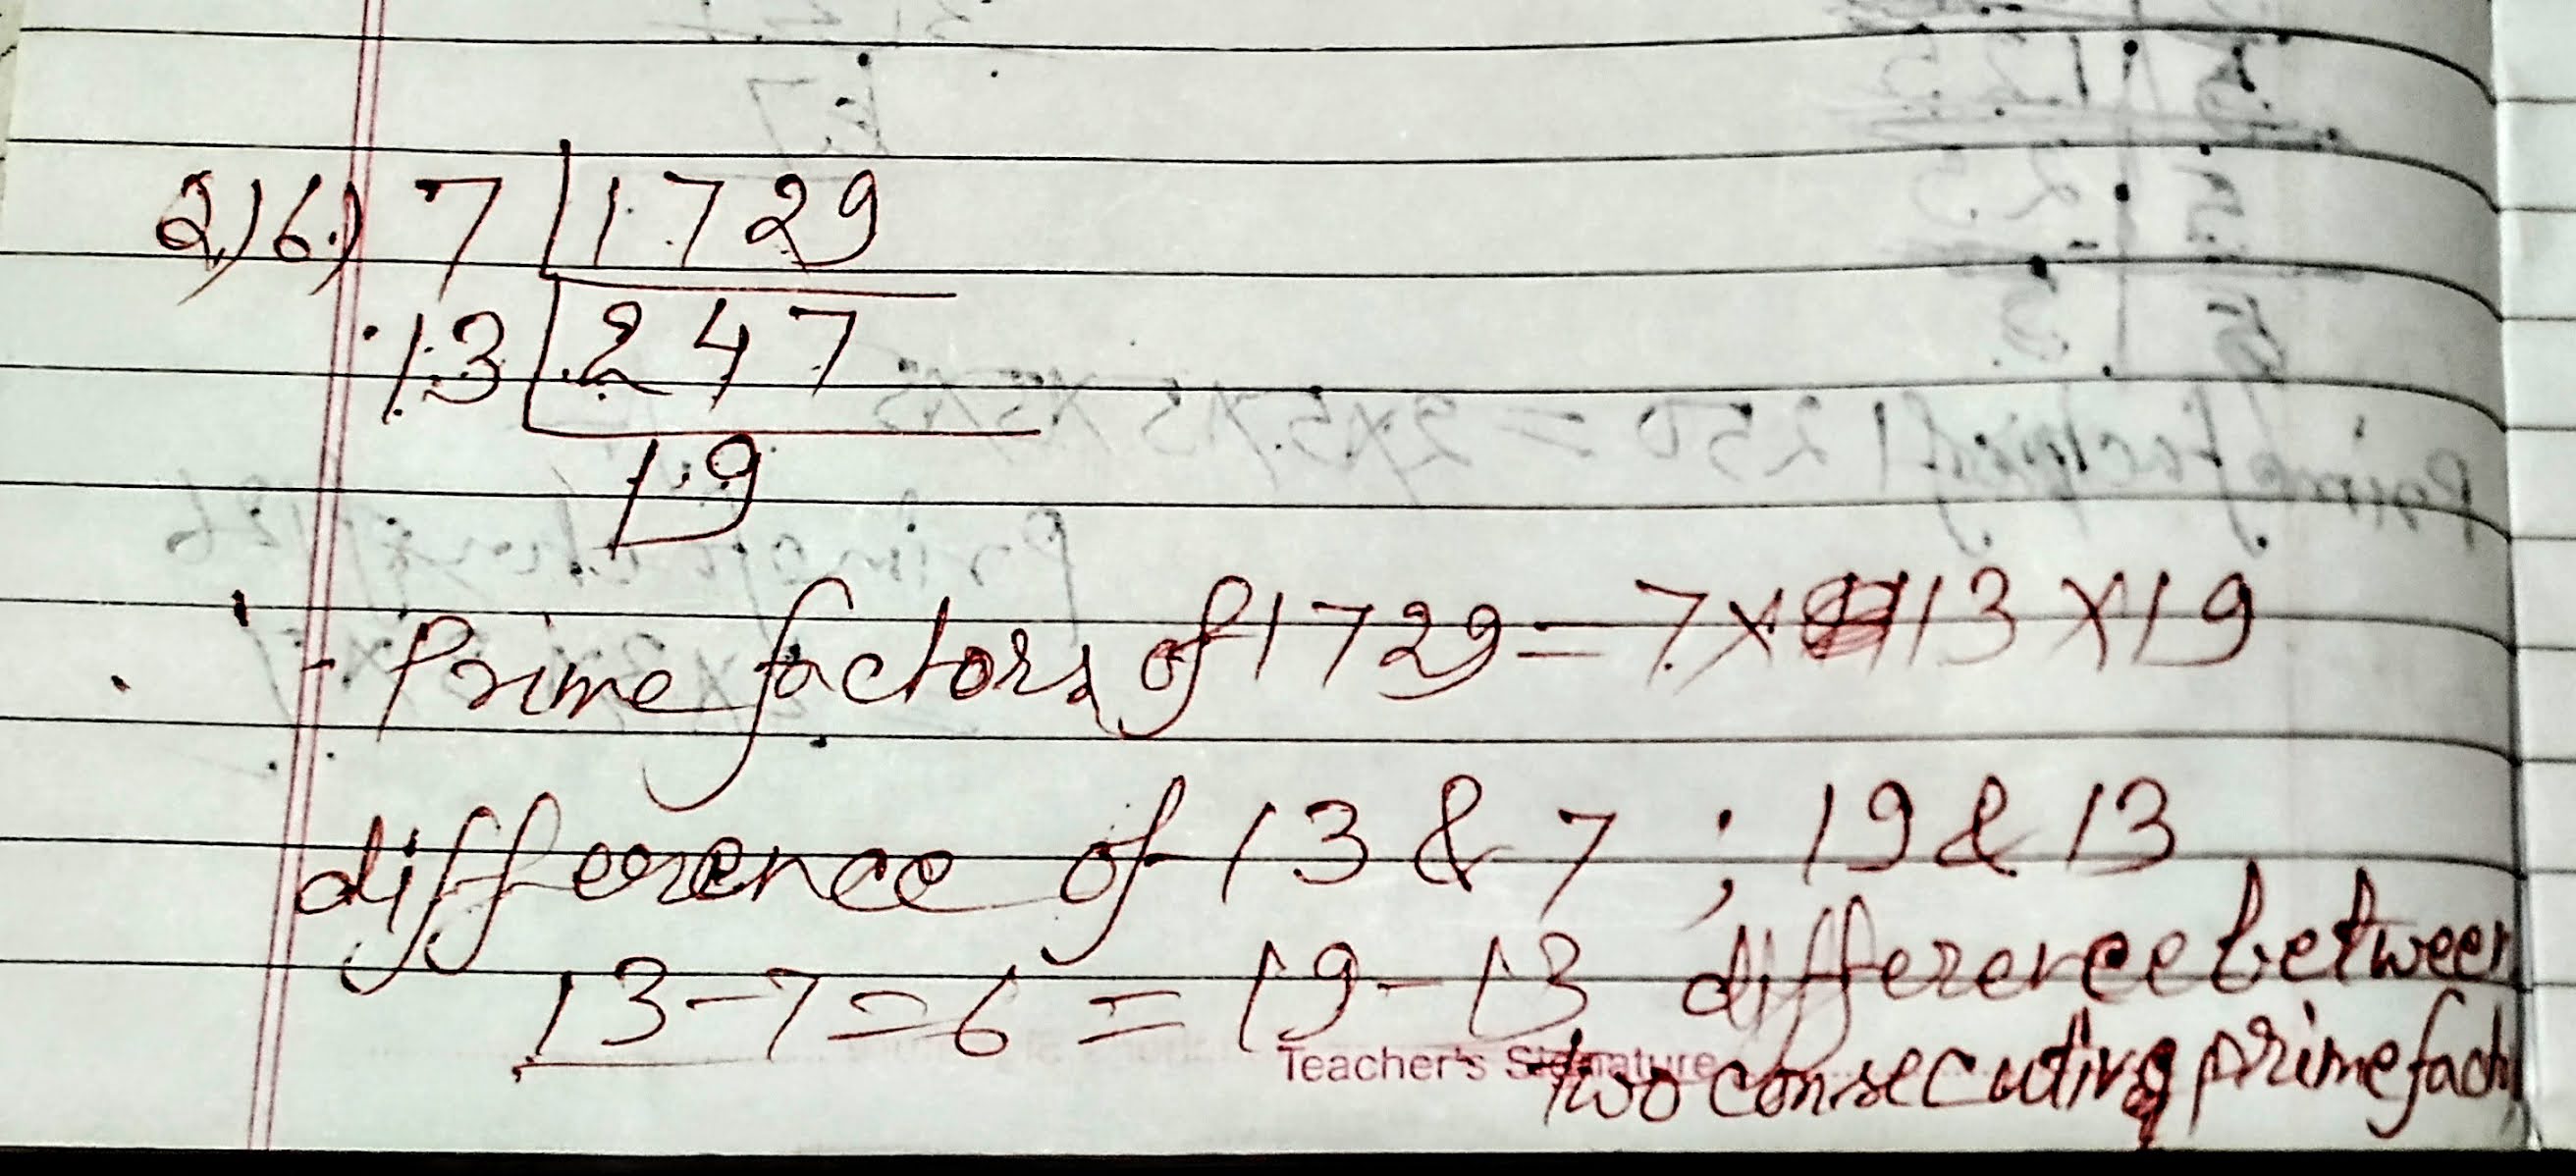 Q)6.) 7 | 1729
13 | 247
19
- Prime factors of 1729 = 7 × 13 × 19
difference of 13 & 7 ; 19 & 13
13 - 7 = 6 = 19 - 13 difference between
two consecutive prime fact
Teacher's Signature